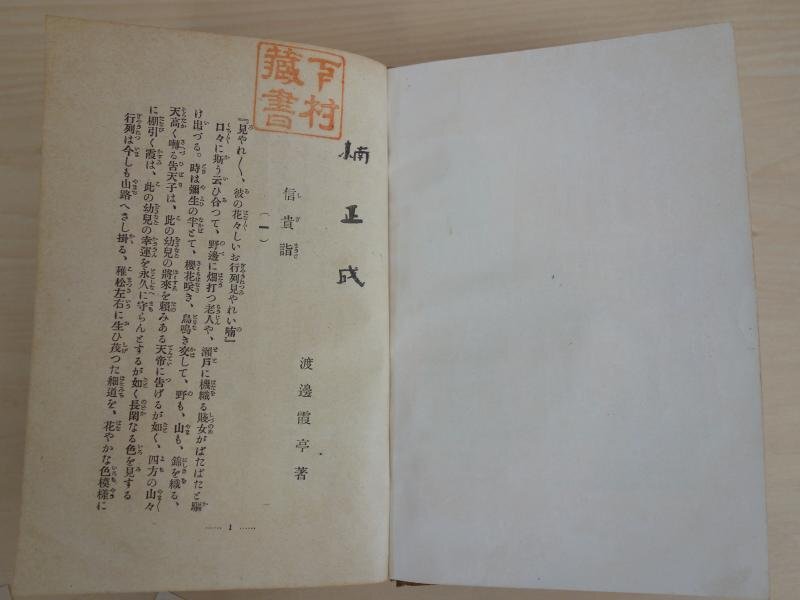 下村
藏書
楠正成
渡邊霞亭著
信貴詣
(一)
『見やれ〱、彼の花々しいお行列見やれい喃』
口々に斯う云ひ合つて、野邊に畑打つ老人や、瀬戸に機織る賤女がばたばたと驅
け出づる。時は彌生の半とて、櫻花咲き、鳥鳴き交して、野も、山も、錦を織る、
天高く囀る告天子は、此の幼兒の將來を頼みある天帝に告げるが如く、四方の山々
に棚引く霞は、此の幼兒の幸運を永久に守らんとするが如く長閑なる色を見する
行列は今しも山路へさし掛る、稚松左右に生ひ茂つた細道を、花やかな色模樣に
…… 1 ……